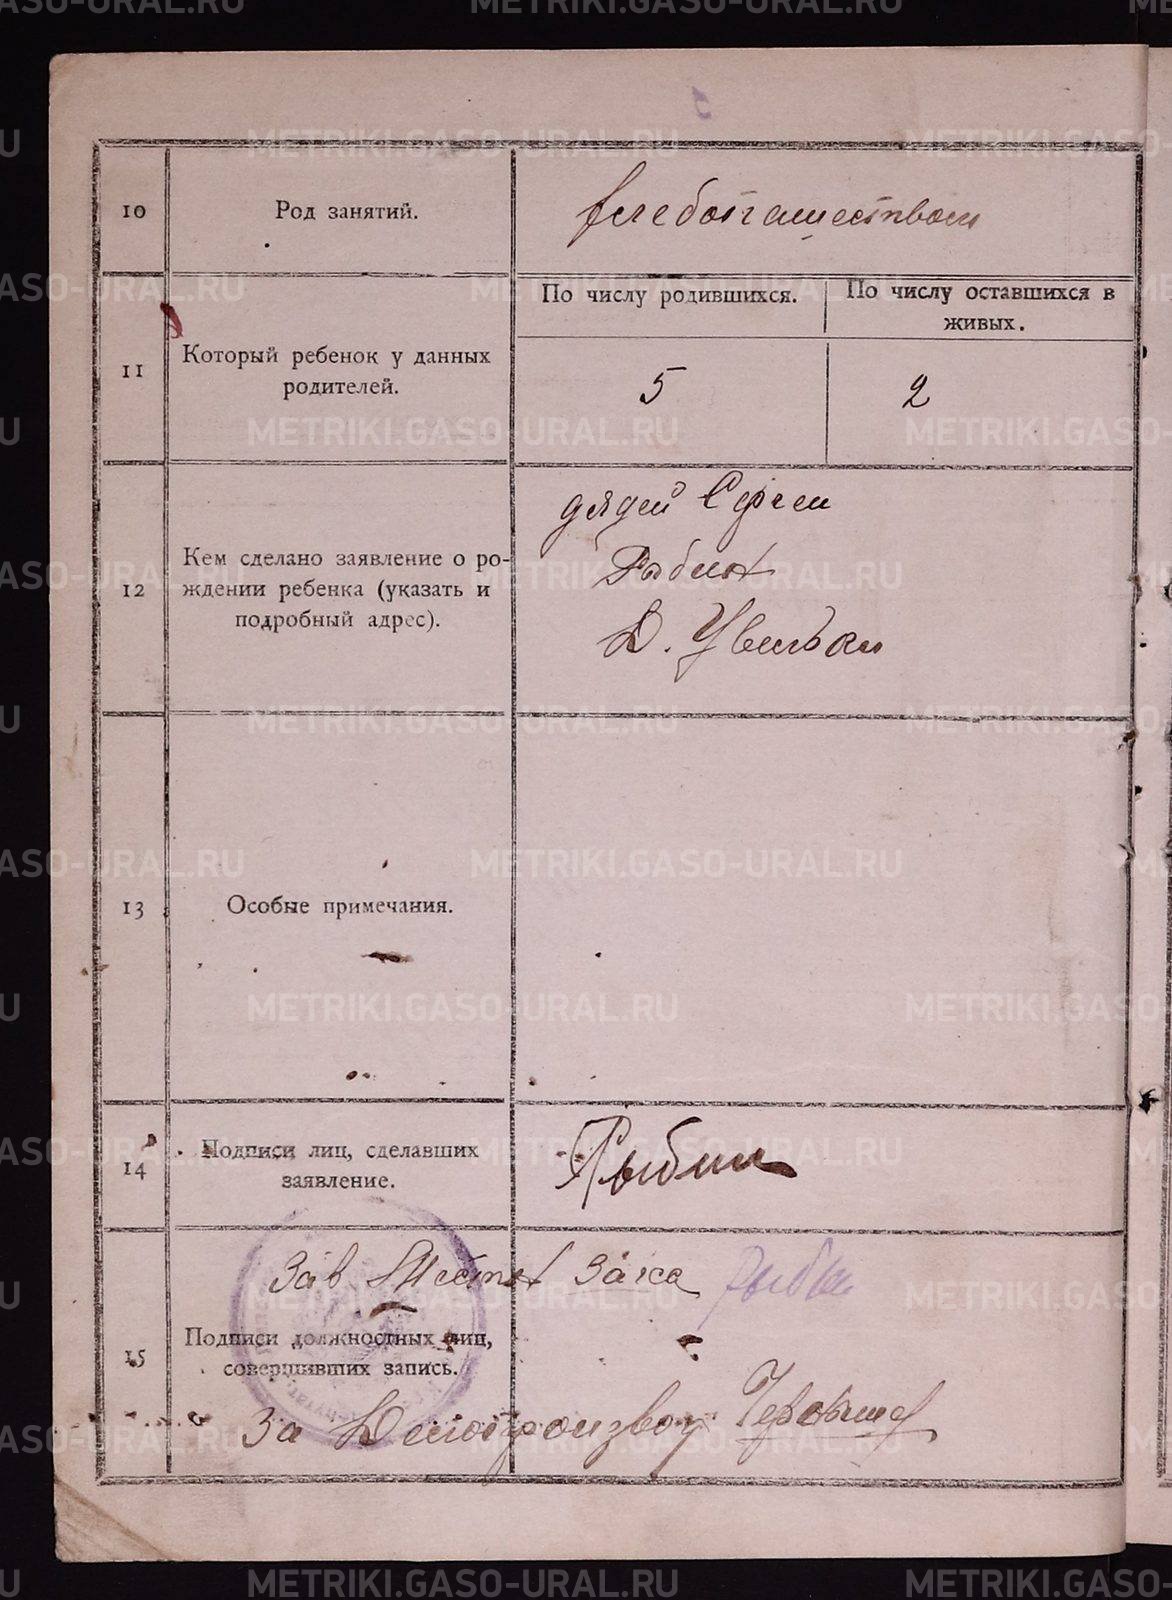 10
Род занятий.
хлебопашеством
11
Который ребенок у данных
родителей.
По числу родившихся.
По числу оставшихся в
живых.
5
2
12
Кем сделано заявление о ро-
ждении ребенка (указать и
подробный адрес).
дядей
Рыбин
Д.
13
Особые примечания.
14
Подписи лиц, сделавших
заявление.
Рыбин
15
Подписи должностных лиц,
совершивших запись.
Зав Загса
За
METRIKI.GASO-URAL.RU